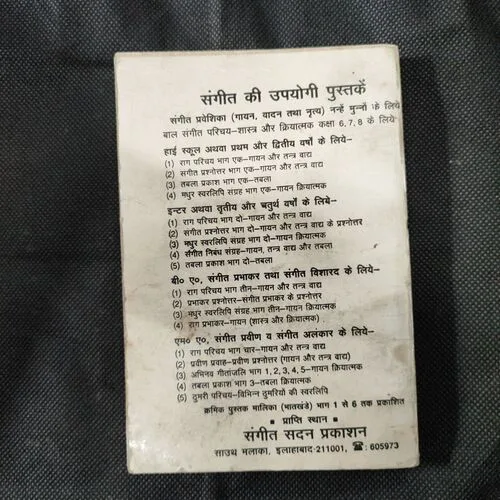 संगीत की उपयोगी पुस्तकें
संगीत प्रवेशिका (गायन, वादन तथा नृत्य) नन्हें मुन्नों के लिये
बाल संगीत परिचय–शास्त्र और क्रियात्मक कक्षा 6, 7, 8 के लिये
हाई स्कूल अथवा प्रथम और द्वितीय वर्षों के लिये–
(1) राग परिचय भाग एक–गायन और तन्त्र वाद्य
(2) संगीत प्रश्नोत्तर भाग एक–गायन और तन्त्र वाद्य
(3) तबला प्रकाश भाग एक–तबला
(4) मधुर स्वरलिपि संग्रह भाग एक–गायन क्रियात्मक
इन्टर अथवा तृतीय और चतुर्थ वर्षों के लिये–
(1) राग परिचय भाग दो–गायन और तन्त्र वाद्य
(2) संगीत प्रश्नोत्तर भाग दो–गायन और तन्त्र वाद्य के प्रश्नोत्तर
(3) मधुर स्वरलिपि संग्रह भाग दो–गायन क्रियात्मक
(4) संगीत निबंध संग्रह–गायन, तन्त्र वाद्य और तबला
(5) तबला प्रकाश भाग दो–तबला
बी० ए०, संगीत प्रभाकर तथा संगीत विशारद के लिये–
(1) राग परिचय भाग तीन–गायन और तन्त्र वाद्य
(2) प्रभाकर प्रश्नोत्तर–संगीत प्रभाकर के प्रश्नोत्तर
(3) मधुर स्वरलिपि संग्रह भाग तीन–गायन क्रियात्मक
(4) राग प्रभाकर–गायन (शास्त्र और क्रियात्मक)
एम० ए०, संगीत प्रवीण व संगीत अलंकार के लिये–
(1) राग परिचय भाग चार–गायन और तन्त्र वाद्य
(2) प्रवीण प्रवाह–प्रवीण प्रश्नोत्तर (गायन और तन्त्र वाद्य)
(3) अभिनव गीतांजलि भाग 1, 2, 3, 4, 5–गायन क्रियात्मक
(4) तबला प्रकाश भाग 3–तबला क्रियात्मक
(5) ठुमरी परिचय–विभिन्न ठुमरियों की स्वरलिपि
क्रमिक पुस्तक मालिका (भातखंडे) भाग 1 से 6 तक प्रकाशित
▪ प्राप्ति स्थान ▪
संगीत सदन प्रकाशन
साउथ मलाका, इलाहाबाद-211001, ☎: 605973